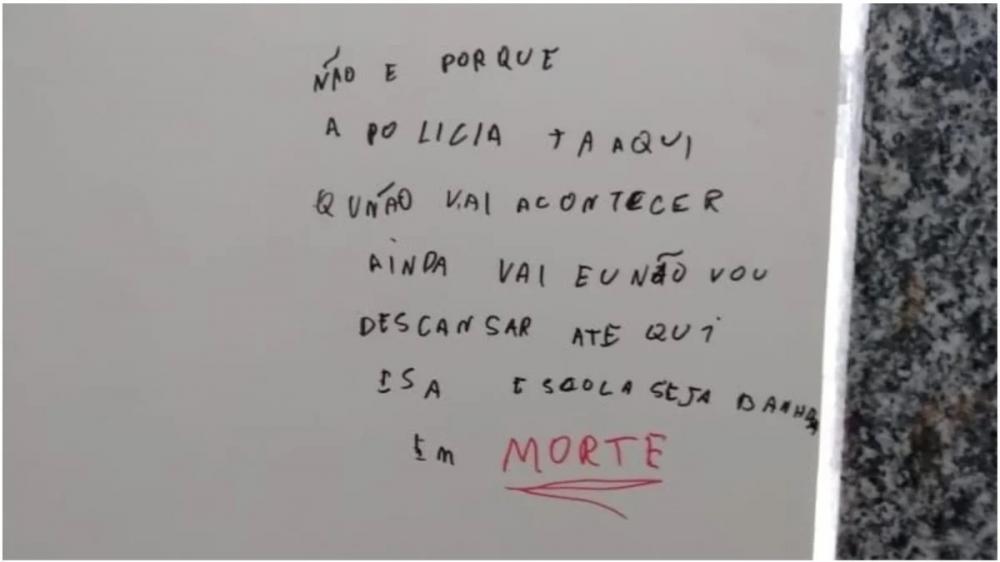 NÃO E PORQUE
A POLICIA TA AQUI
QUNÃO VAI ACONTECER
AINDA VAI EU NÃO VOU
DESCANSAR ATE QUI
ESA ESCOLA SEJA BANHA
EM MORTE